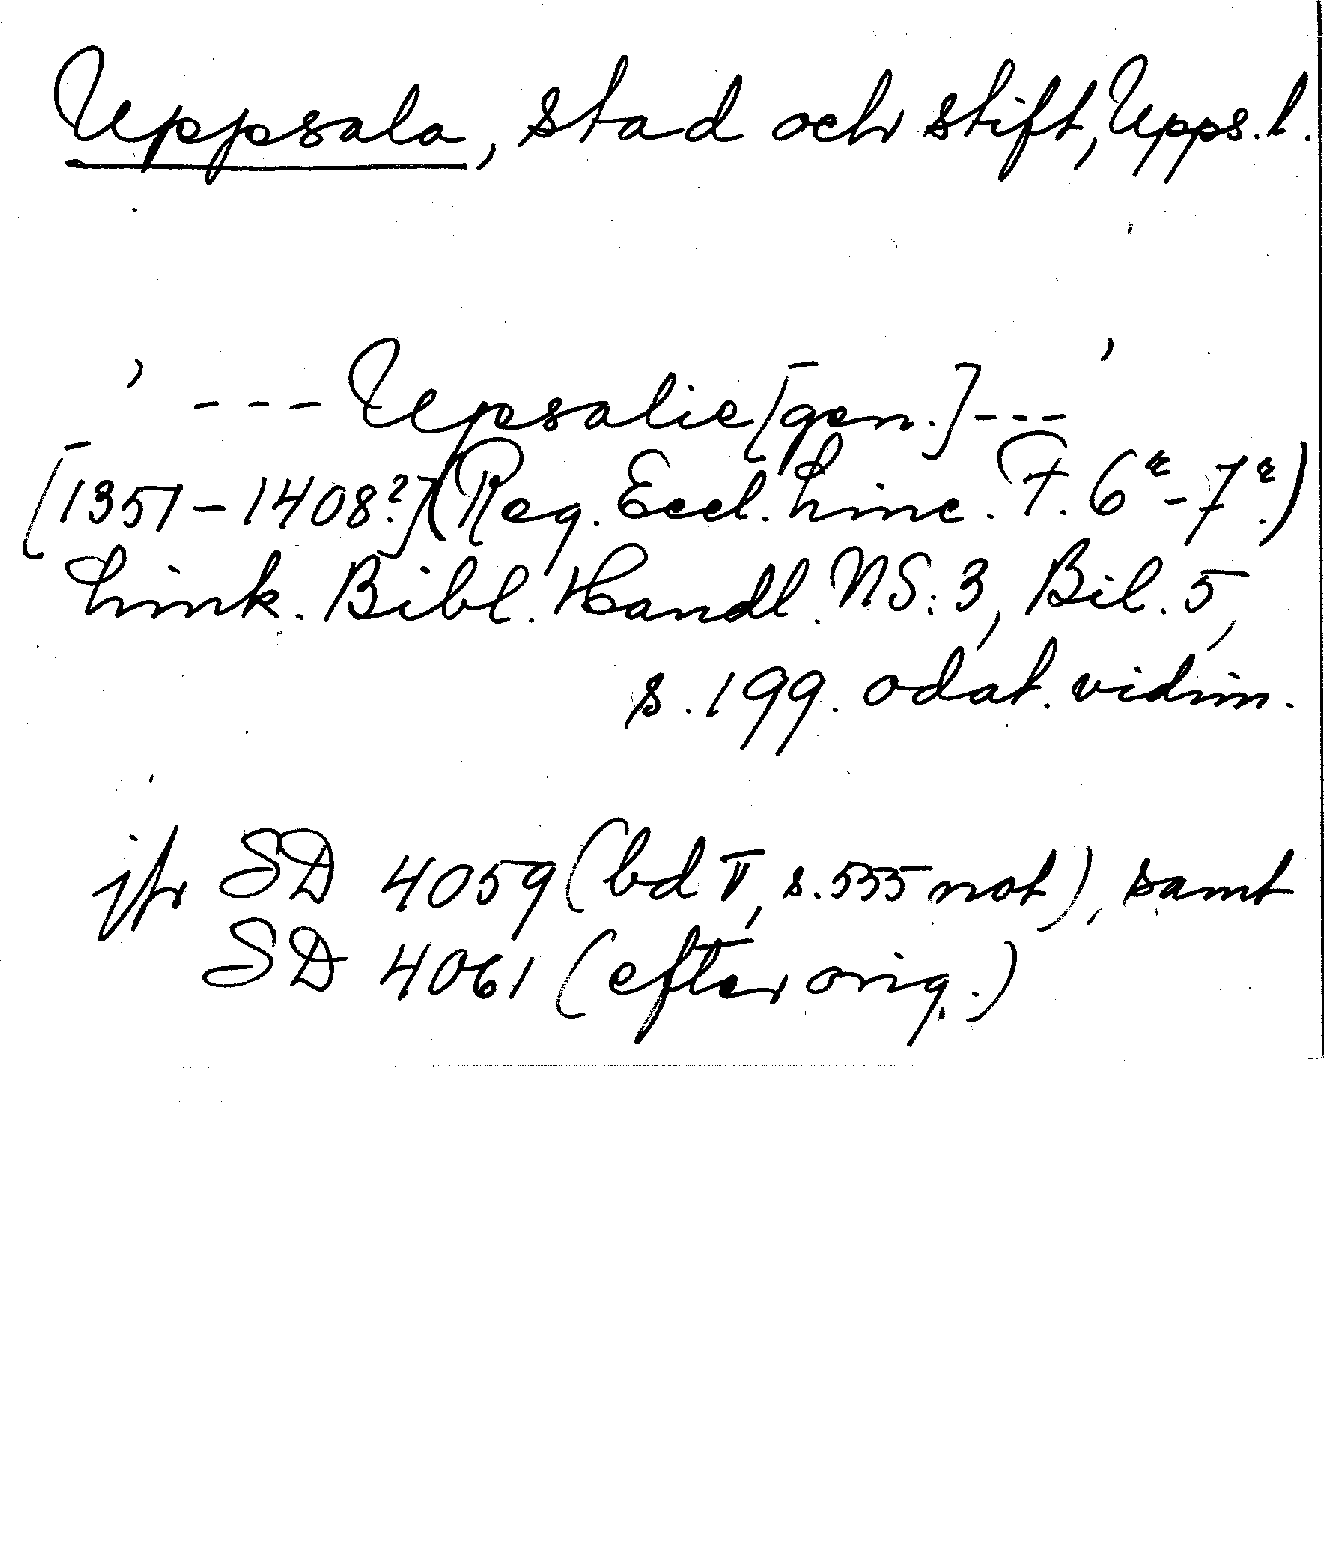 Uppsala, stad och stift, Upps. l.
' --- Upsalie [gen.] --- '
[1351-1408?] (Reg. Eccl. Linc. F. 6r-7r.)
Link. Bibl. Handl. NS: 3, Bil. 5,
s. 199. odat. vidim.
jfr SD 4059 (bd V, s. 555 not), samt
SD 4061 (efter orig.)